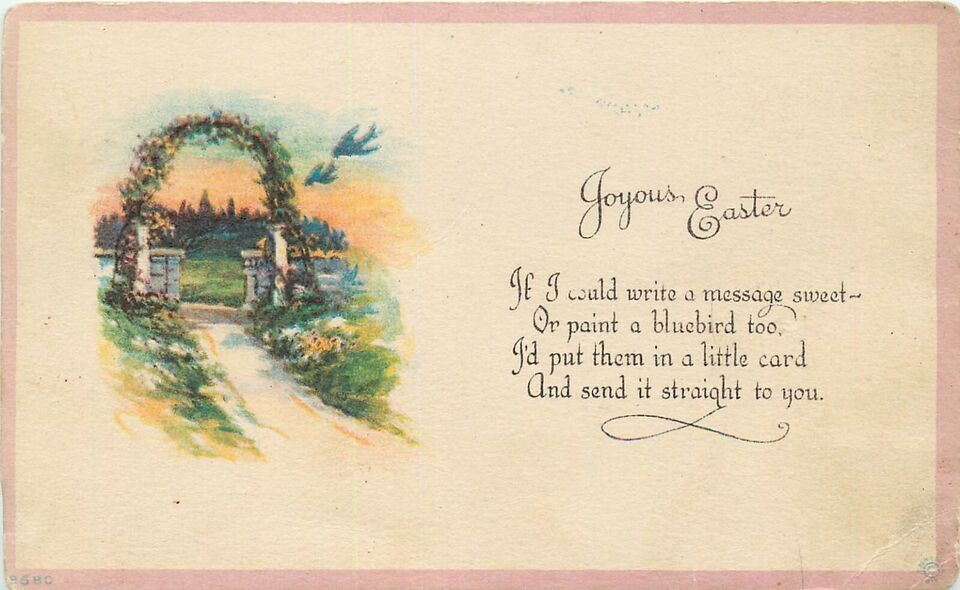 Joyous Easter
If I could write a message sweet~
Or paint a bluebird too,
I'd put them in a little card
And send it straight to you.